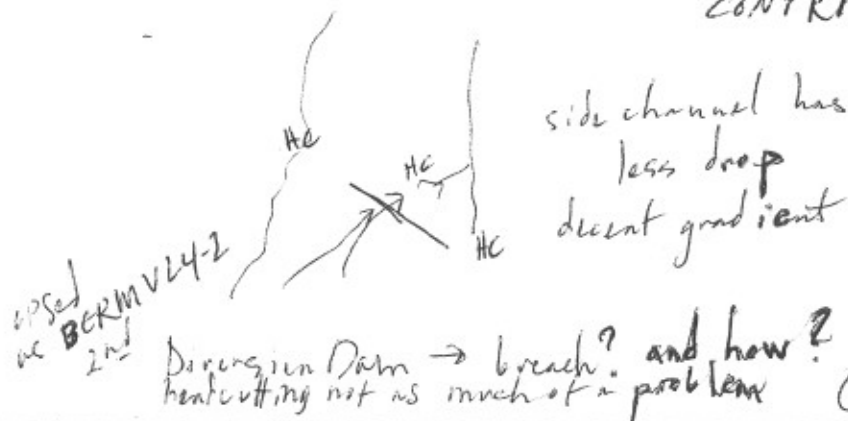 CONTRA
side channel has
HC
less drop
HC
decent gradient
HC
BERM V24-2
2nd
Diversion Dam → breach? and how?
headcutting not as much of a problem